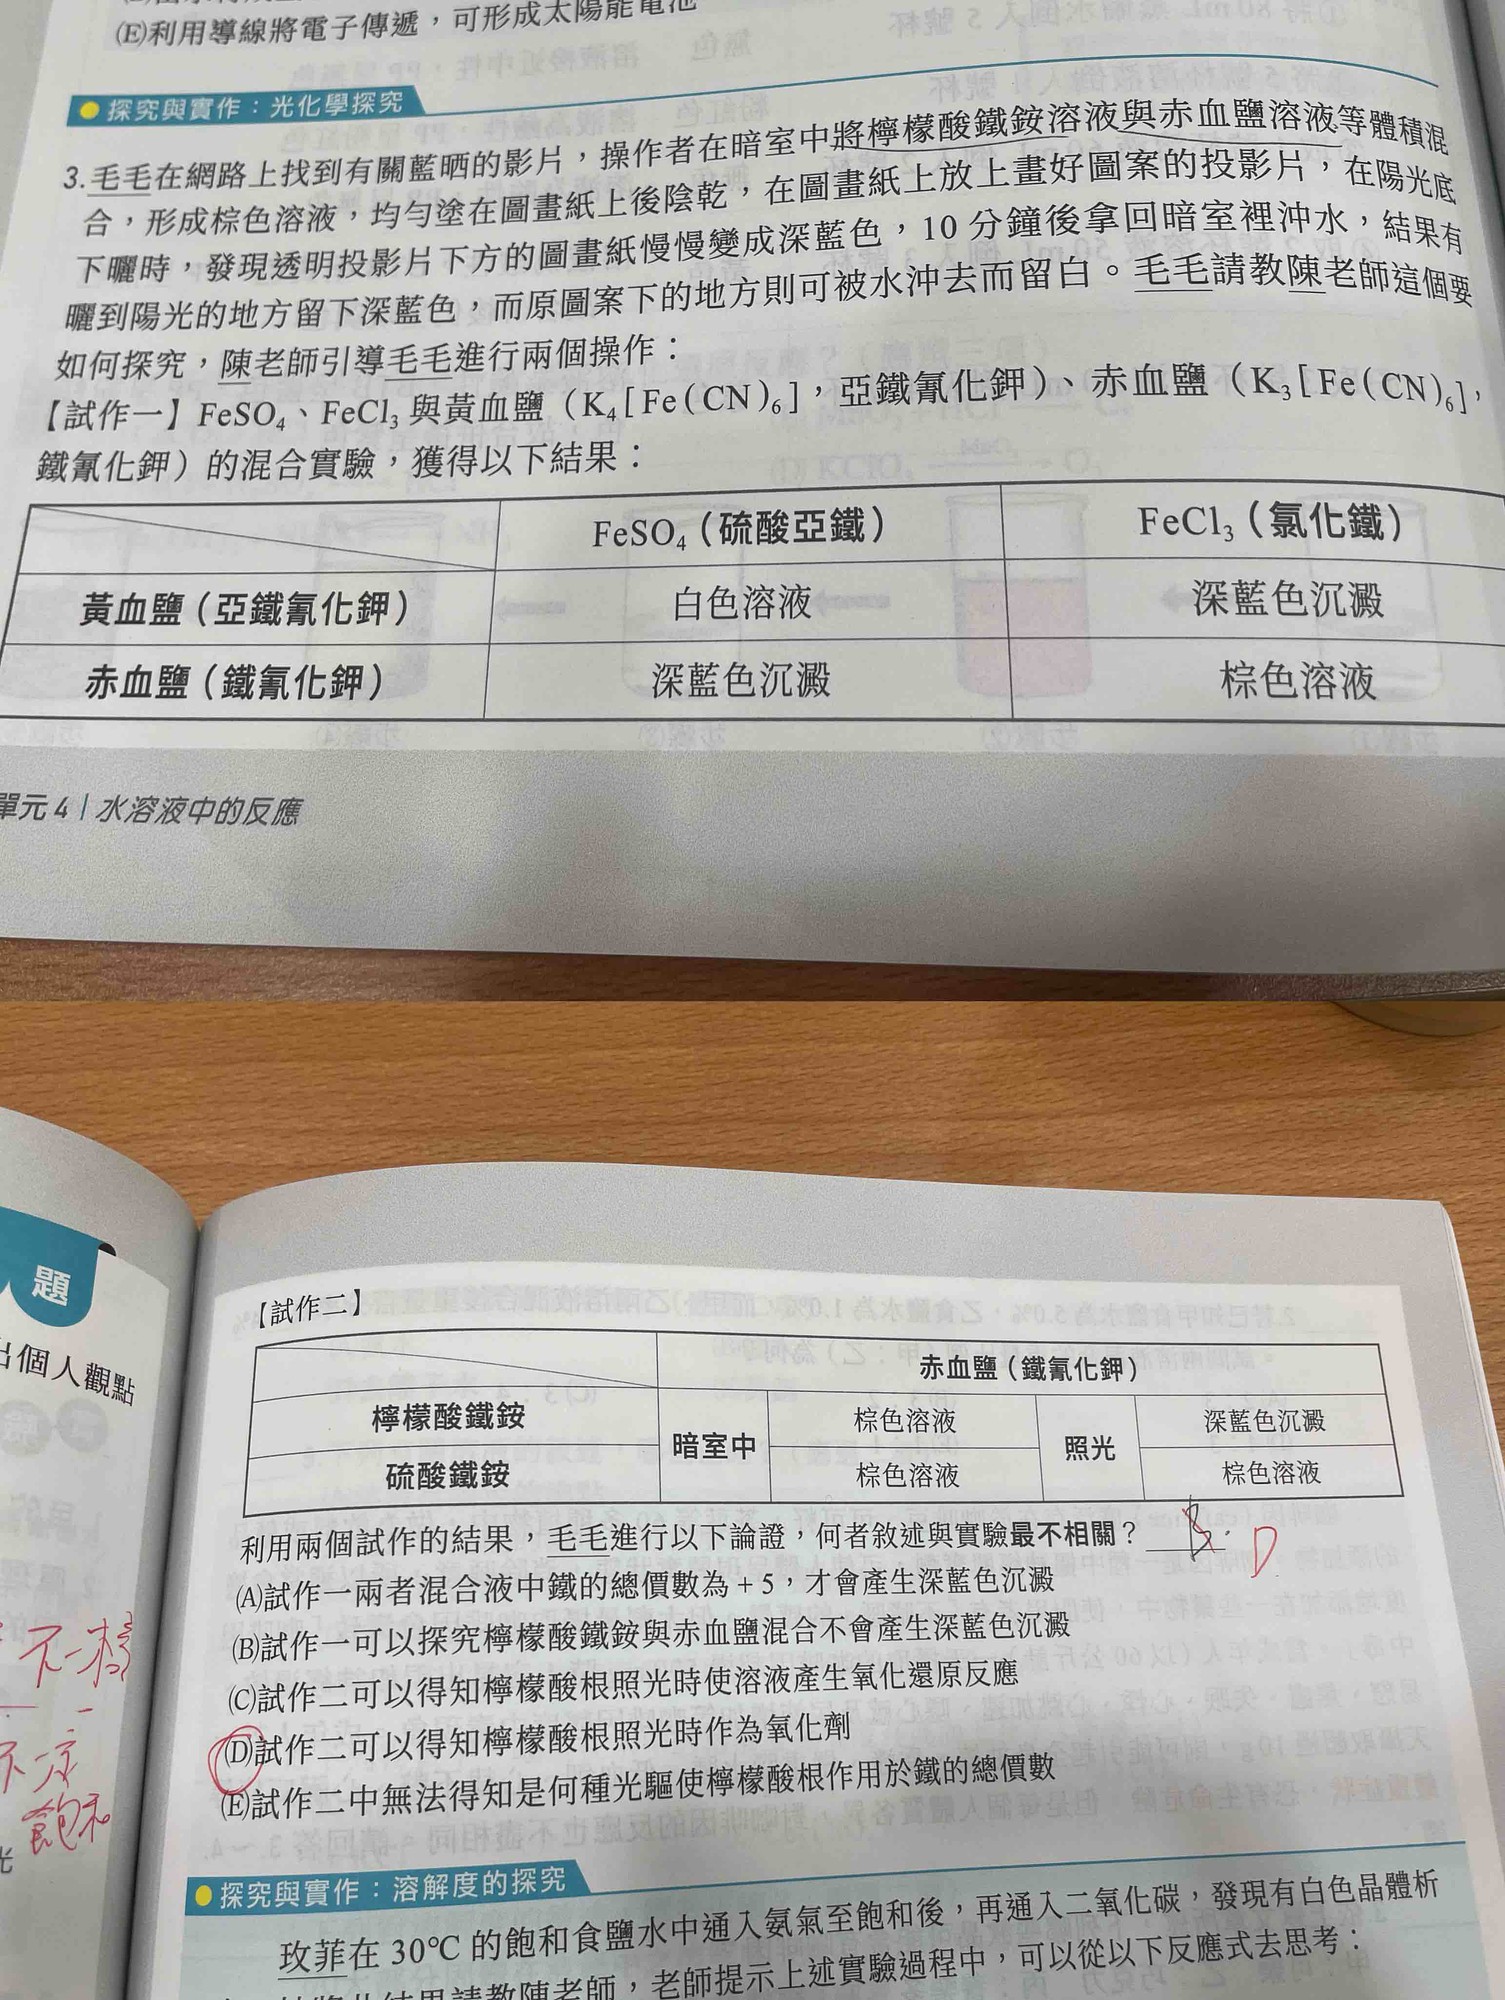 (E)利用導線將電子傳遞，可形成太陽能電池
探究與實作：光化學探究
3.毛毛在網路上找到有關藍晒的影片，操作者在暗室中將檸檬酸鐵銨溶液與赤血鹽溶液等體積混
合，形成棕色溶液，均勻塗在圖畫紙上後陰乾，在圖畫紙上放上畫好圖案的投影片，在陽光底
下曬時，發現透明投影片下方的圖畫紙慢慢變成深藍色，10 分鐘後拿回暗室裡沖水，結果有
曬到陽光的地方留下深藍色，而原圖案下的地方則可被水沖去而留白。毛毛請教陳老師這個要
如何探究，陳老師引導毛毛進行兩個操作：
【試作一】FeSO₄、FeCl₃ 與黃血鹽（K₄[Fe(CN)₆]，亞鐵氰化鉀）、赤血鹽（K₃[Fe(CN)₆]，
鐵氰化鉀）的混合實驗，獲得以下結果：
FeSO₄（硫酸亞鐵） FeCl₃（氯化鐵）
黃血鹽（亞鐵氰化鉀） 白色溶液 深藍色沉澱
赤血鹽（鐵氰化鉀） 深藍色沉澱 棕色溶液
單元 4 | 水溶液中的反應
題
出個人觀點
不一樣
不一定
飽和
光
【試作二】
赤血鹽（鐵氰化鉀）
檸檬酸鐵銨 暗室中 棕色溶液 照光 深藍色沉澱
硫酸鐵銨 棕色溶液 棕色溶液
利用兩個試作的結果，毛毛進行以下論證，何者敘述與實驗最不相關？ B. D
(A)試作一兩者混合液中鐵的總價數為 + 5，才會產生深藍色沉澱
(B)試作一可以探究檸檬酸鐵銨與赤血鹽混合不會產生深藍色沉澱
(C)試作二可以得知檸檬酸根照光時使溶液產生氧化還原反應
(D)試作二可以得知檸檬酸根照光時作為氧化劑
(E)試作二中無法得知是何種光驅使檸檬酸根作用於鐵的總價數
探究與實作：溶解度的探究
玫菲在 30℃ 的飽和食鹽水中通入氨氣至飽和後，再通入二氧化碳，發現有白色晶體析
結果請教陳老師，老師提示上述實驗過程中，可以從以下反應式去思考：